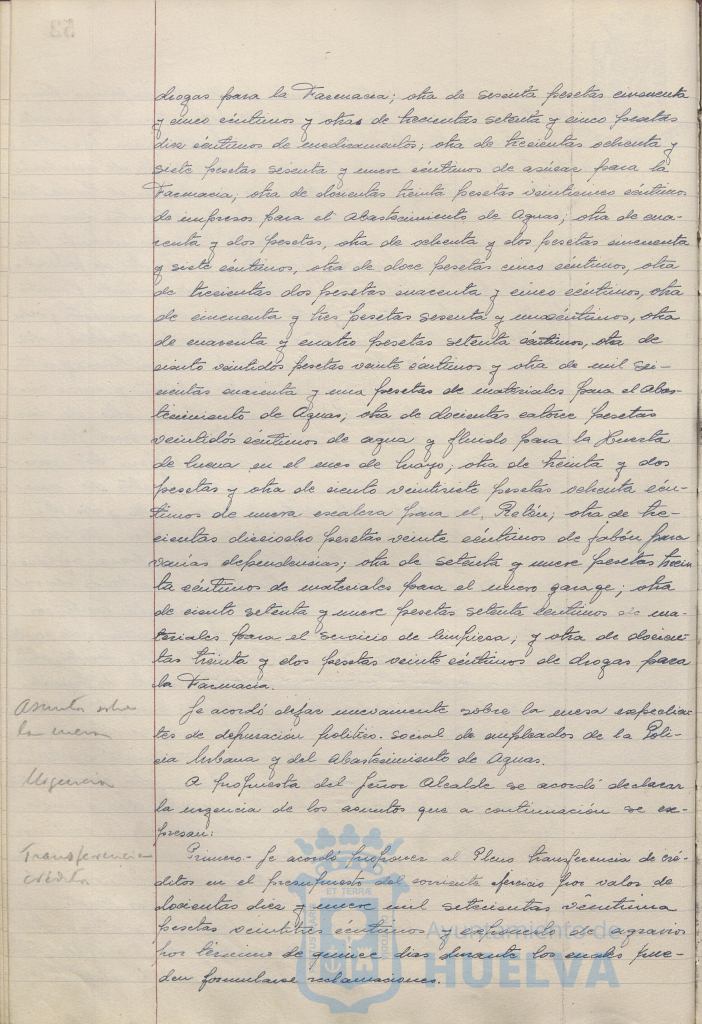 drogas para la Farmacia; otra de sesenta pesetas cincuenta
y cinco céntimos y otras de trescientas setenta y cinco pesetas
diez céntimos de medicamentos; otra de trescientas ochenta y
siete pesetas sesenta y nueve céntimos de azúcar para la
Farmacia; otra de doscientas treinta pesetas veinticinco céntimos
de impresos para el Abastecimiento de Aguas; otra de cua-
renta y dos pesetas, otra de ochenta y dos pesetas cincuenta
y siete céntimos, otra de doce pesetas cinco céntimos, otra
de trescientas dos pesetas cuarenta y cinco céntimos, otra
de cincuenta y tres pesetas sesenta y un céntimos, otra
de cuarenta y cuatro pesetas setenta céntimos, otra de
ciento veintidós pesetas veinte céntimos y otra de mil sei-
cientas cuarenta y una pesetas de materiales para el Abas-
tecimiento de Aguas; otra de docientas catorce pesetas
veintidós céntimos de agua y fluido para la Huerta
de Mena en el mes de Mayo; otra de treinta y dos
pesetas y otra de ciento veintisiete pesetas ochenta cén-
timos de nueva escalera para el Reloj; otra de tres-
cientas dieciocho pesetas veinte céntimos de jabón para
varias dependencias; otra de setenta y nueve pesetas trein
ta céntimos de materiales para el nuevo garage; otra
de ciento setenta y nueve pesetas setenta céntimos de ma-
teriales para el servicio de limpieza; y otra de docien-
tas treinta y dos pesetas veinte céntimos de drogas para
la Farmacia.
Asuntos sobre
la mesa
Se acordó dejar nuevamente sobre la mesa expedien-
tes de depuración político-social de empleados de la Poli-
cia Urbana y del Abastecimiento de Aguas.
Urgencia
A propuesta del Señor Alcalde se acordó declarar
la urgencia de los asuntos que a continuación se ex-
presan:
Transferencia
crédito
Primero- Se acordó proponer al Pleno transferencia de cré-
ditos en el presupuesto del corriente ejercicio por valor de
doscientas diez y nueve mil setecientas veintiuna
pesetas veintitrés céntimos y exponerlo de agravios
por término de quince días durante los cuales pue-
den formularse reclamaciones.
Ayuntamiento de
HUELVA